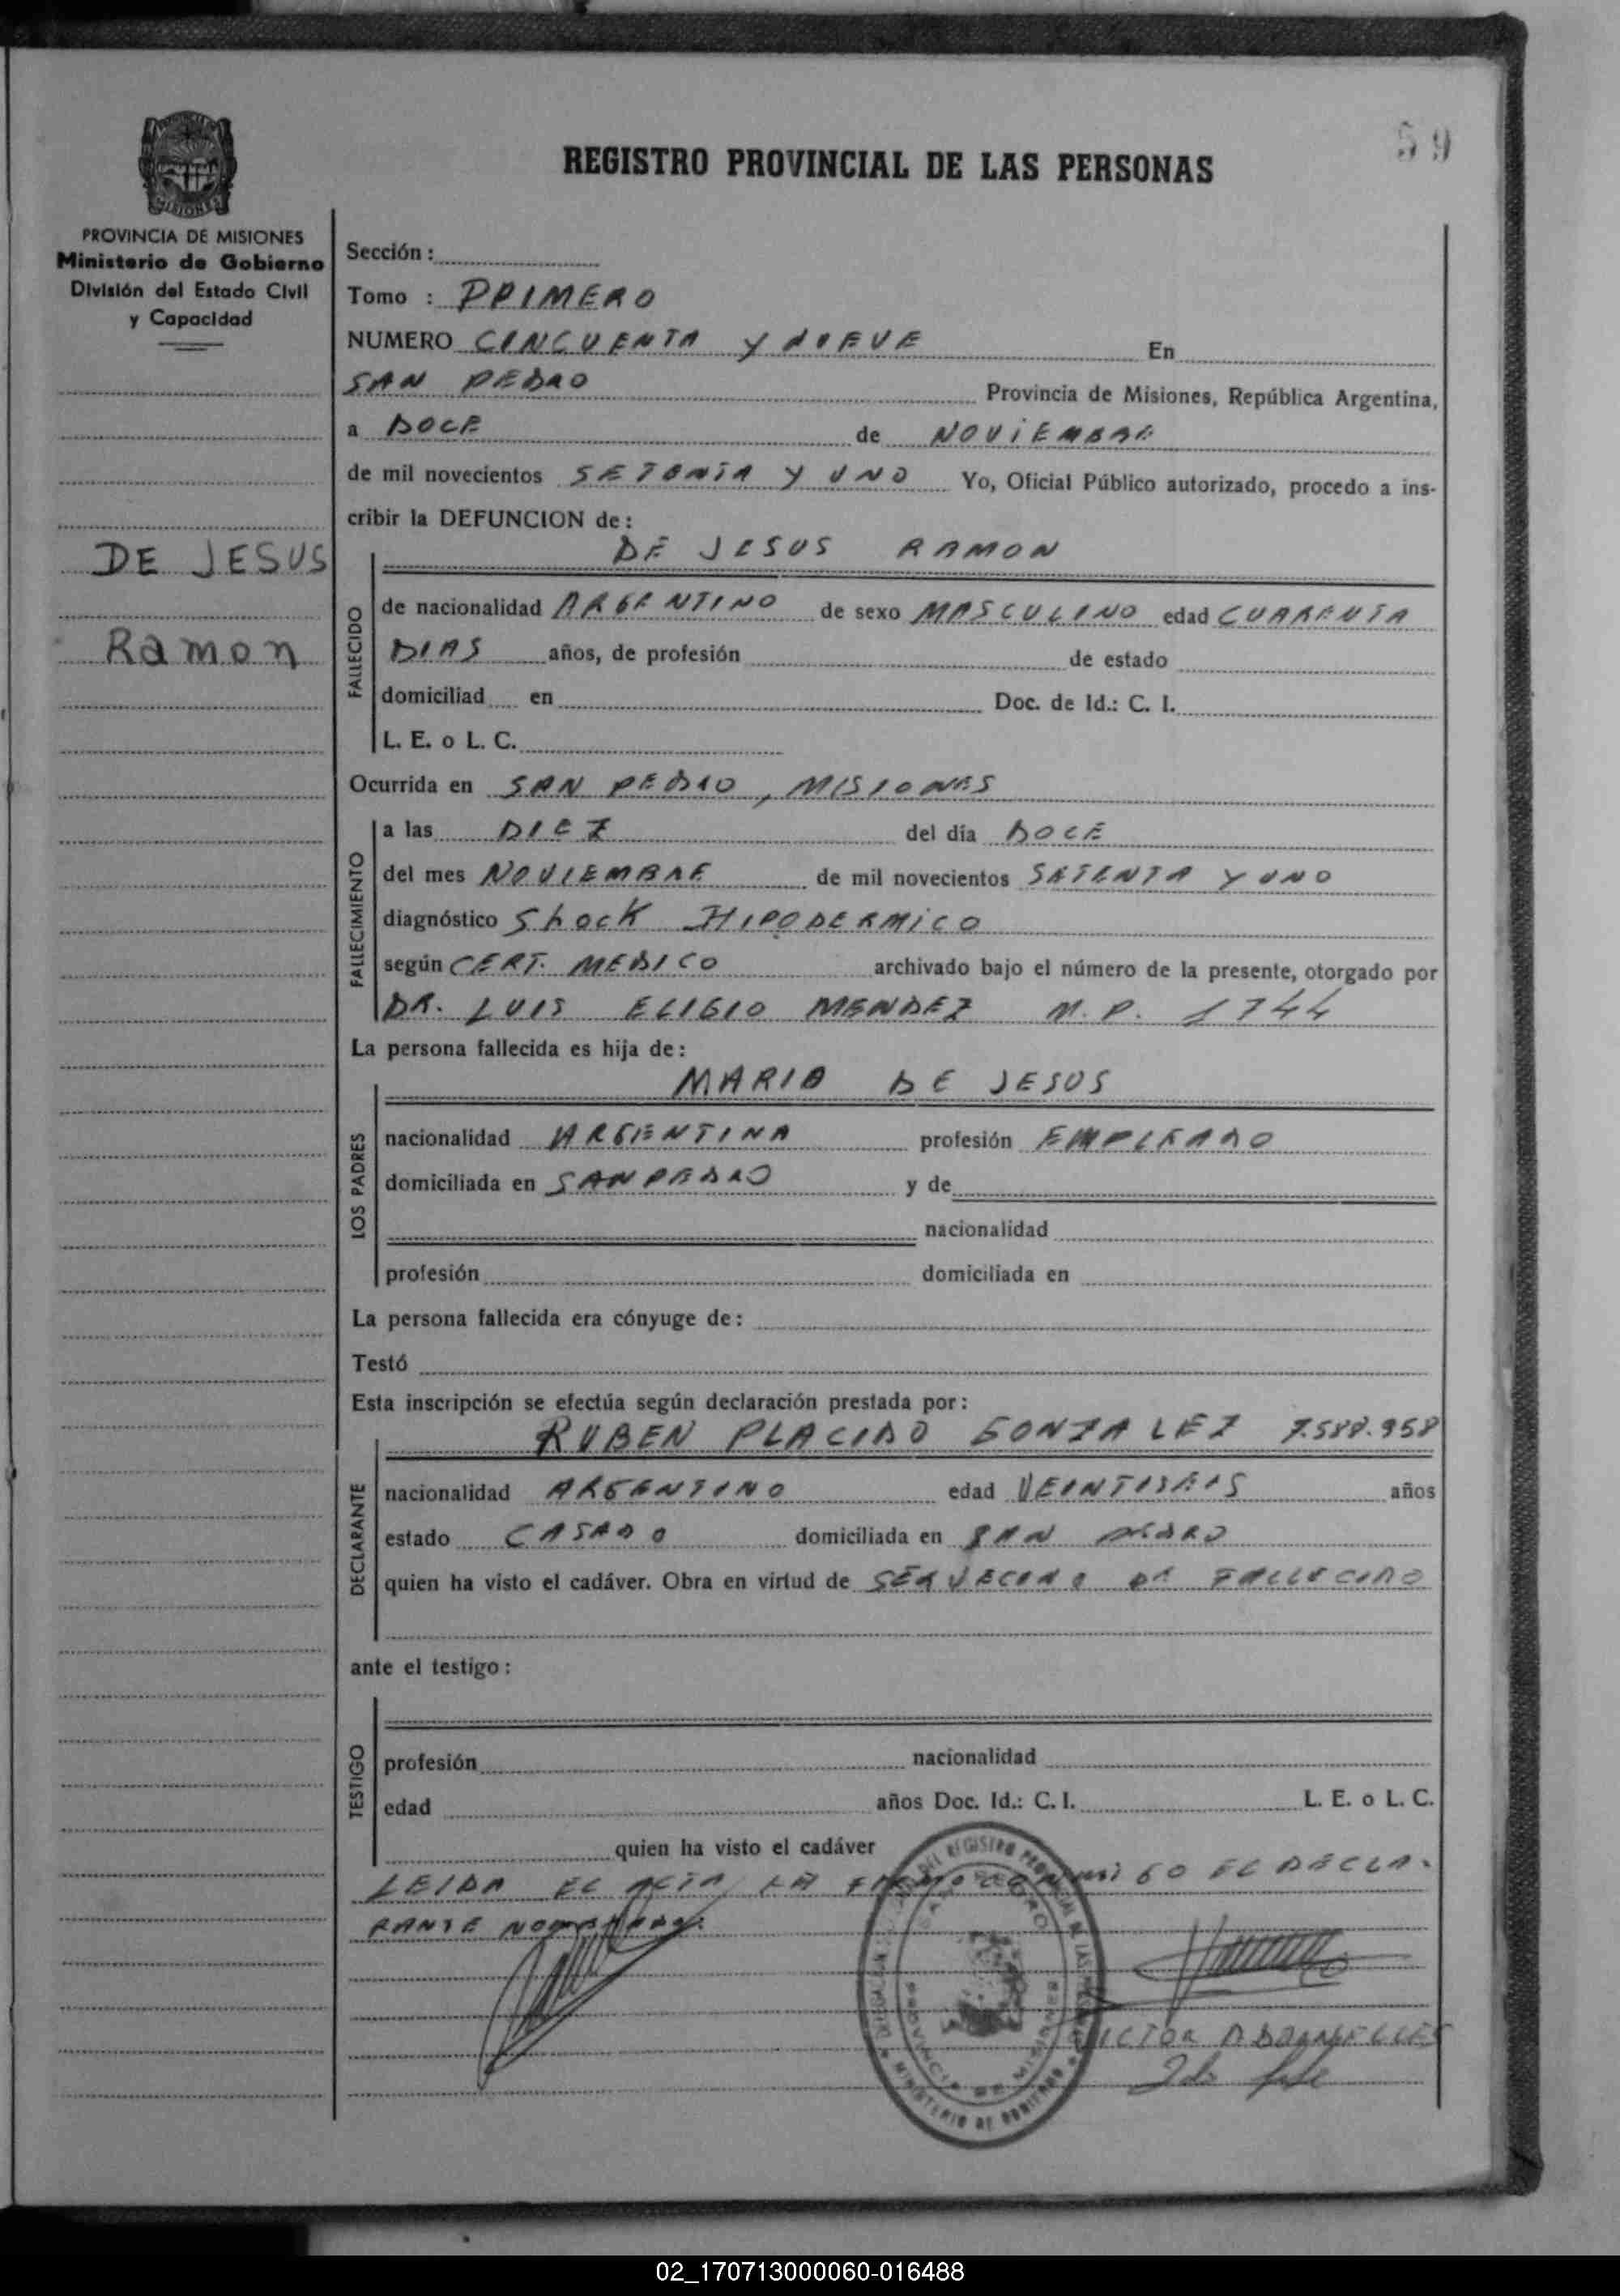 59
REGISTRO PROVINCIAL DE LAS PERSONAS
MISIONES
PROVINCIA DE MISIONES
Ministerio de Gobierno
División del Estado Civil
y Capacidad
DE JESUS
Ramon
Sección :
Tomo : PRIMERO
NUMERO CINCUENTA Y NUEVE En
SAN PEDRO Provincia de Misiones, República Argentina,
a DOCE de NOVIEMBRE
de mil novecientos SETENTA Y UNO Yo, Oficial Público autorizado, procedo a ins-
cribir la DEFUNCION de :
DE JESUS RAMON
FALLECIDO
de nacionalidad ARGENTINO de sexo MASCULINO edad CUARENTA
DIAS años, de profesión de estado
domiciliad en Doc. de Id.: C. I.
L. E. o L. C.
Ocurrida en SAN PEDRO, MISIONES
FALLECIMIENTO
a las DIEZ del día DOCE
del mes NOVIEMBRE de mil novecientos SETENTA Y UNO
diagnóstico Shock HIPODERMICO
según CERT. MEDICO archivado bajo el número de la presente, otorgado por
DR. LUIS ELIGIO MENDEZ M. P. 1744
La persona fallecida es hija de :
MARIA DE JESUS
LOS PADRES
nacionalidad ARGENTINA profesión EMPLEADO
domiciliada en SAN PEDRO y de
nacionalidad
profesión domiciliada en
La persona fallecida era cónyuge de :
Testó
Esta inscripción se efectúa según declaración prestada por :
RUBEN PLACIDO GONZALEZ 7.588.958
DECLARANTE
nacionalidad ARGENTINO edad VEINTISEIS años
estado CASADO domiciliada en SAN PEDRO
quien ha visto el cadáver. Obra en virtud de SER VECINO DE FALLECIDO
ante el testigo :
TESTIGO
profesión nacionalidad
edad años Doc. Id.: C. I. L. E. o L. C.
quien ha visto el cadáver
LEIDA EL ACTA, LA FIRMO CONMIGO EL DECLA-
RANTE
DEL REGISTRO PROVINCIAL DE LAS
PROVINCIA DE MISIONES
MINISTERIO DE GOBIERNO
02_170713000060-016488